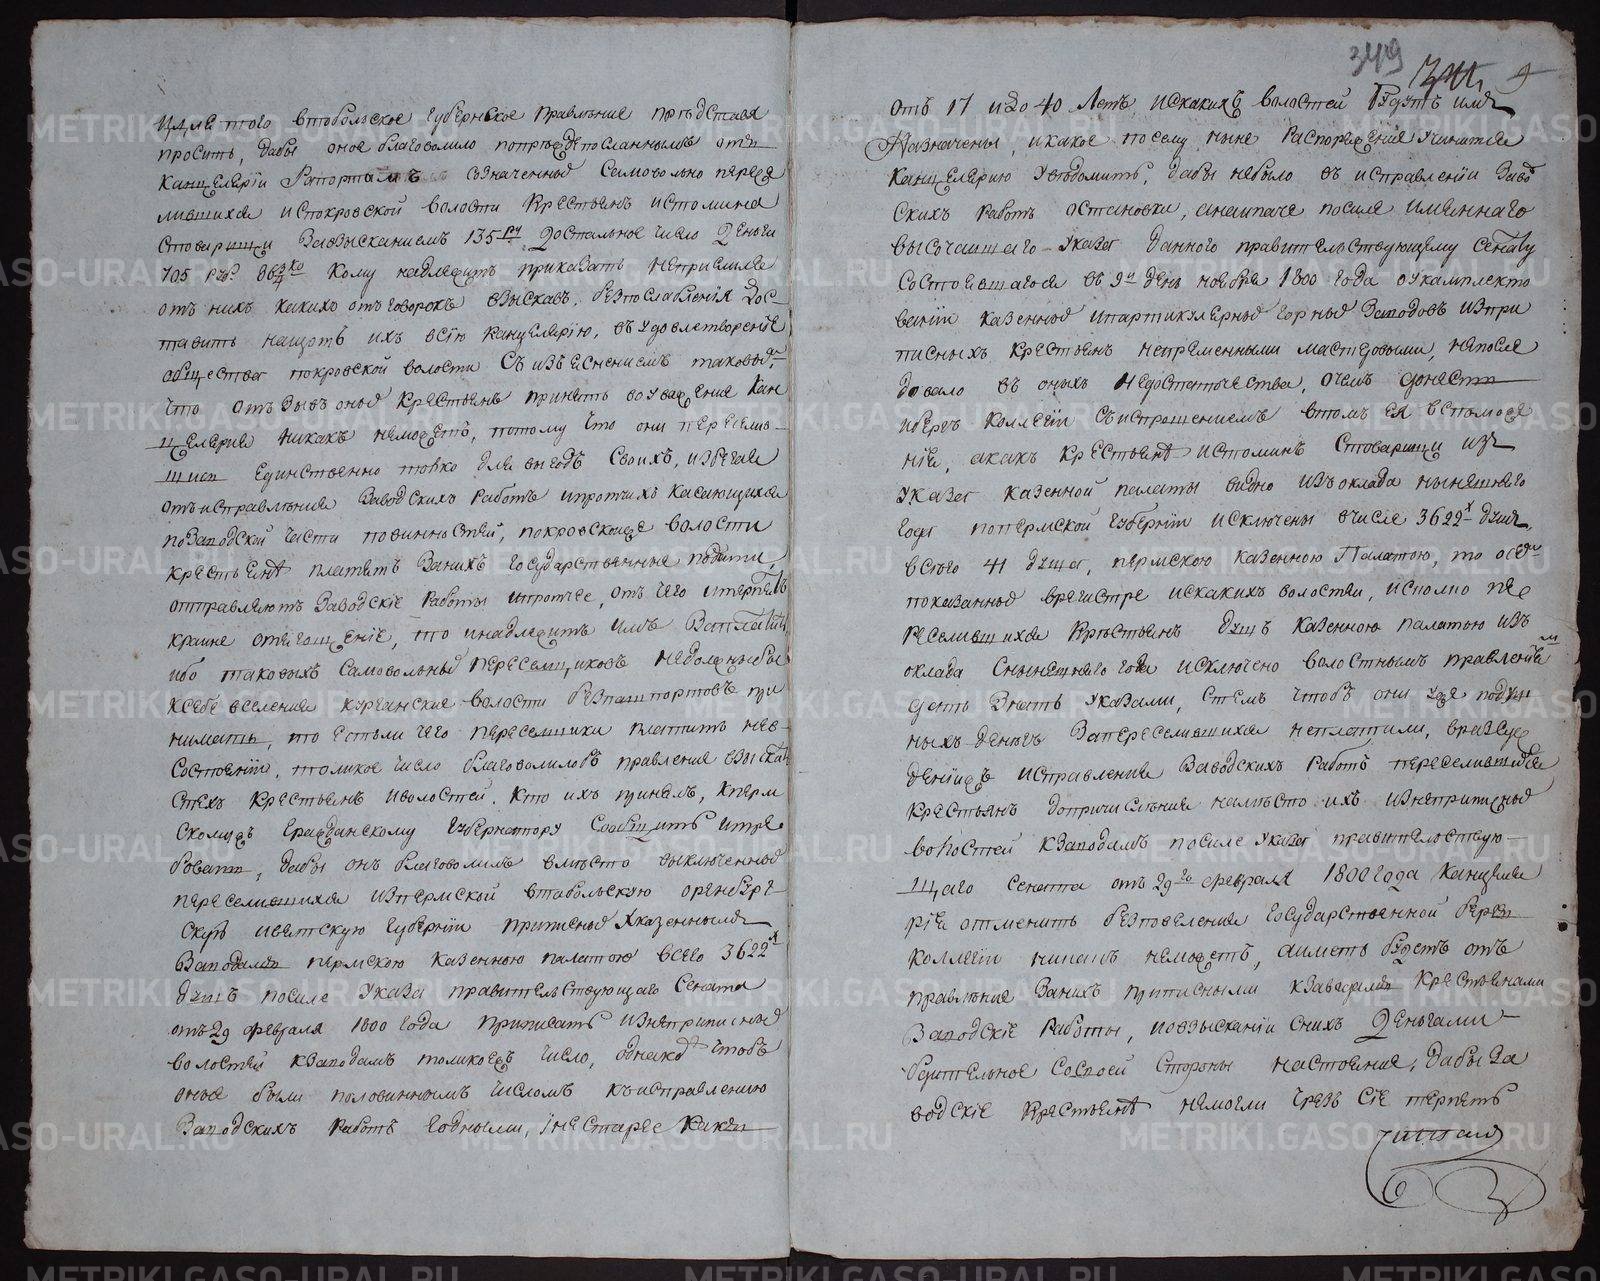 и для того втобольское Губернское Правление представя
просить, дабы оное благоволило попрежде посланнымъ отъ
Канцелярии Рапортамъ означенныхъ самовольно пересе
лившихся ис покровской волости Крестьянъ истомина
стоварищи Завзысканиемъ 135 ру достальное число денги
705 руб. 86 3/4 ко кому надлежитъ приказать неприемля
отъ нихъ какихъ отъговорокъ взыскавъ, безпослабления дос-
тавить нащотъ ихъ всию канцелярию, въ удовлетворение
общества покровской волости съ изъеснениемъ таковымъ,
что отзывъ оныхъ Крестьянъ принять воуважение Кан
целярия никакъ неможетъ, потому что они переселив-
шись единственно токмо для выгодъ своихъ, избегая
отъ исправления заводскихъ работъ ипротчихъ касающихся
позаводской части повинностей, покровскойже волости
крестьянѣ платятъ Занихъ государственные подати,
отправляютъ Заводские работы ипротчее, отъ чего итерпятъ
крайне отягощение, то инадлежитъ имъ Заплатить,
ибо таковыхъ самовольныхъ переселщиковъ недолжныбы
ксебе вселение курганские волости безпашпортовъ при
нимать, то естьли чего переселщики платить нев-
состоянии, толикое число благоволилобъ правление взыскать
стехъ крестьянъ иволостей, кто ихъ принялъ, кперм
скомужъ гражданскому губернатору сообщить итре
бовать, дабы онъ благоволилъ вместо выключенныхъ
переселившихся изпермской втобольскую оренбург
скую ивятскую губернии приписныхъ кказеннымъ
Заводамъ пермскою казенною палатою всего 3622х
душъ посиле указа правительствующаго Сената
отъ 29 февраля 1800 года приписать изнеприписныхъ
волостей кзаводамъ толикоежъ число, однакожъ чтобъ
оные были половиннымъ числомъ къисправлению
Заводскихъ работъ годными, инестарее какъ
349
9
отъ 17 идо 40 летъ, искакихъ волостей будутъ имъ
Назначены, икакое посему ныне распоряжение учинится
Канцелярию уведомить, дабы небыло въ исправлении завод
скихъ работъ остановки, анаипаче посиле имяннаго
высочайшаго указа данного правительствующему сенату
состоявшагося въ 9й день ноября 1800 года оукамплекто
вании казенныхъ ипартикулярныхъ горныхъ Заводовъ изпри
писныхъ крестьянъ непременными мастеровыми, непосле
довало въ оныхъ недостаточества, очемъ донести
иберг коллегии съиспрошениемъ втомъ ея вспоможе
ние, акакъ крестьянѣ истоминъ стоварищи изъ
указа казенной палаты видно изъоклада нынешнего
года попермской губернии исключены вчисле 3622х душъ,
всего 41 душа, пермскою казенною Палатою, то обѣ
показанныхъ врегистре искакихъ волостей, исколко пе
реселившихся крестьянъ душъ казенною палатою изъ
оклада снынешнего года исключено волостнымъ правлениямъ
дать знать указами, стемъ чтобъ они уже подуш
ныхъ денегъ Запереселившихся неплатили, вразсуж
дениежъ исправления Заводскихъ работъ переселившимися
крестьянъ допричисления наместо ихъ изнеприписныхъ
волостей кзаводамъ посиле указа правительствую-
щаго Сената отъ 29го февраля 1800 года канцеля
рия отменить безповеления государственной берг
коллегии никакъ неможетъ, аиметь будетъ отъ
правления Занихъ приписными кзаводамъ крестьянами
Заводские работы, повзыскании снихъ денгами
бдительное сосвоей стороны настояние, дабы за
водские крестьянѣ немогли чрезъ сие терпеть